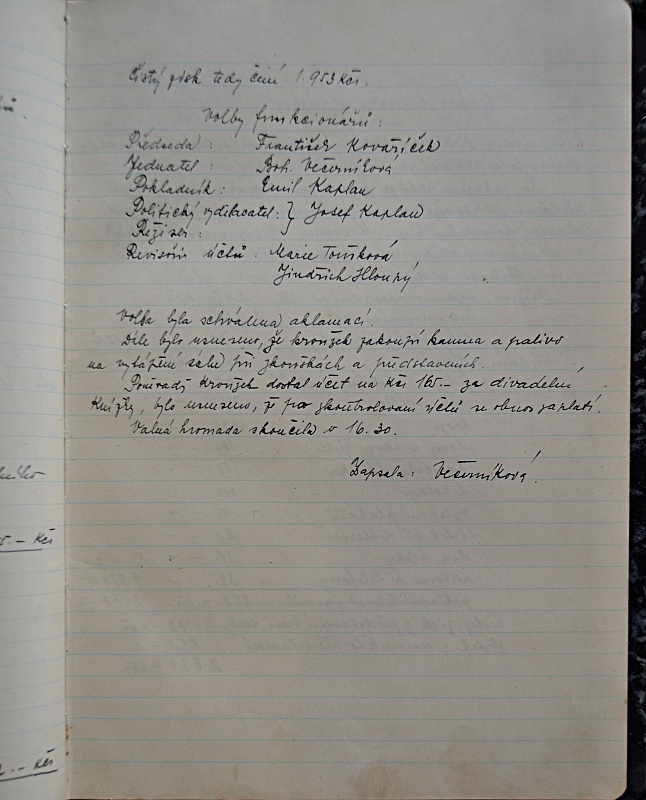 ů.
Čistý zisk tedy činí 1.953 Kčs.
Volby funkcionářů:
Předseda: František Kovaříček
Jednatel: Boh. Večerníková
Pokladník: Emil Kaplan
Politický vzdělavatel: } Josef Kaplan
Režiser:
Revisoři účtů: Marie Tomková
Jindřich Hloupý
Volba byla schválena aklamací.
Dále bylo usneseno, že kroužek zakoupí kamna a palivo
na vytápění sálu při zkouškách a představeních.
Poněvadž kroužek dostal účet na Kčs 165.- za divadelní
knížky, bylo usneseno, že po zkontrolování účtů se obnos zaplatí.
Valná hromada skončila v 16.30.
Zapsala: Večerníková.
5.- Kčs
.- Kčs